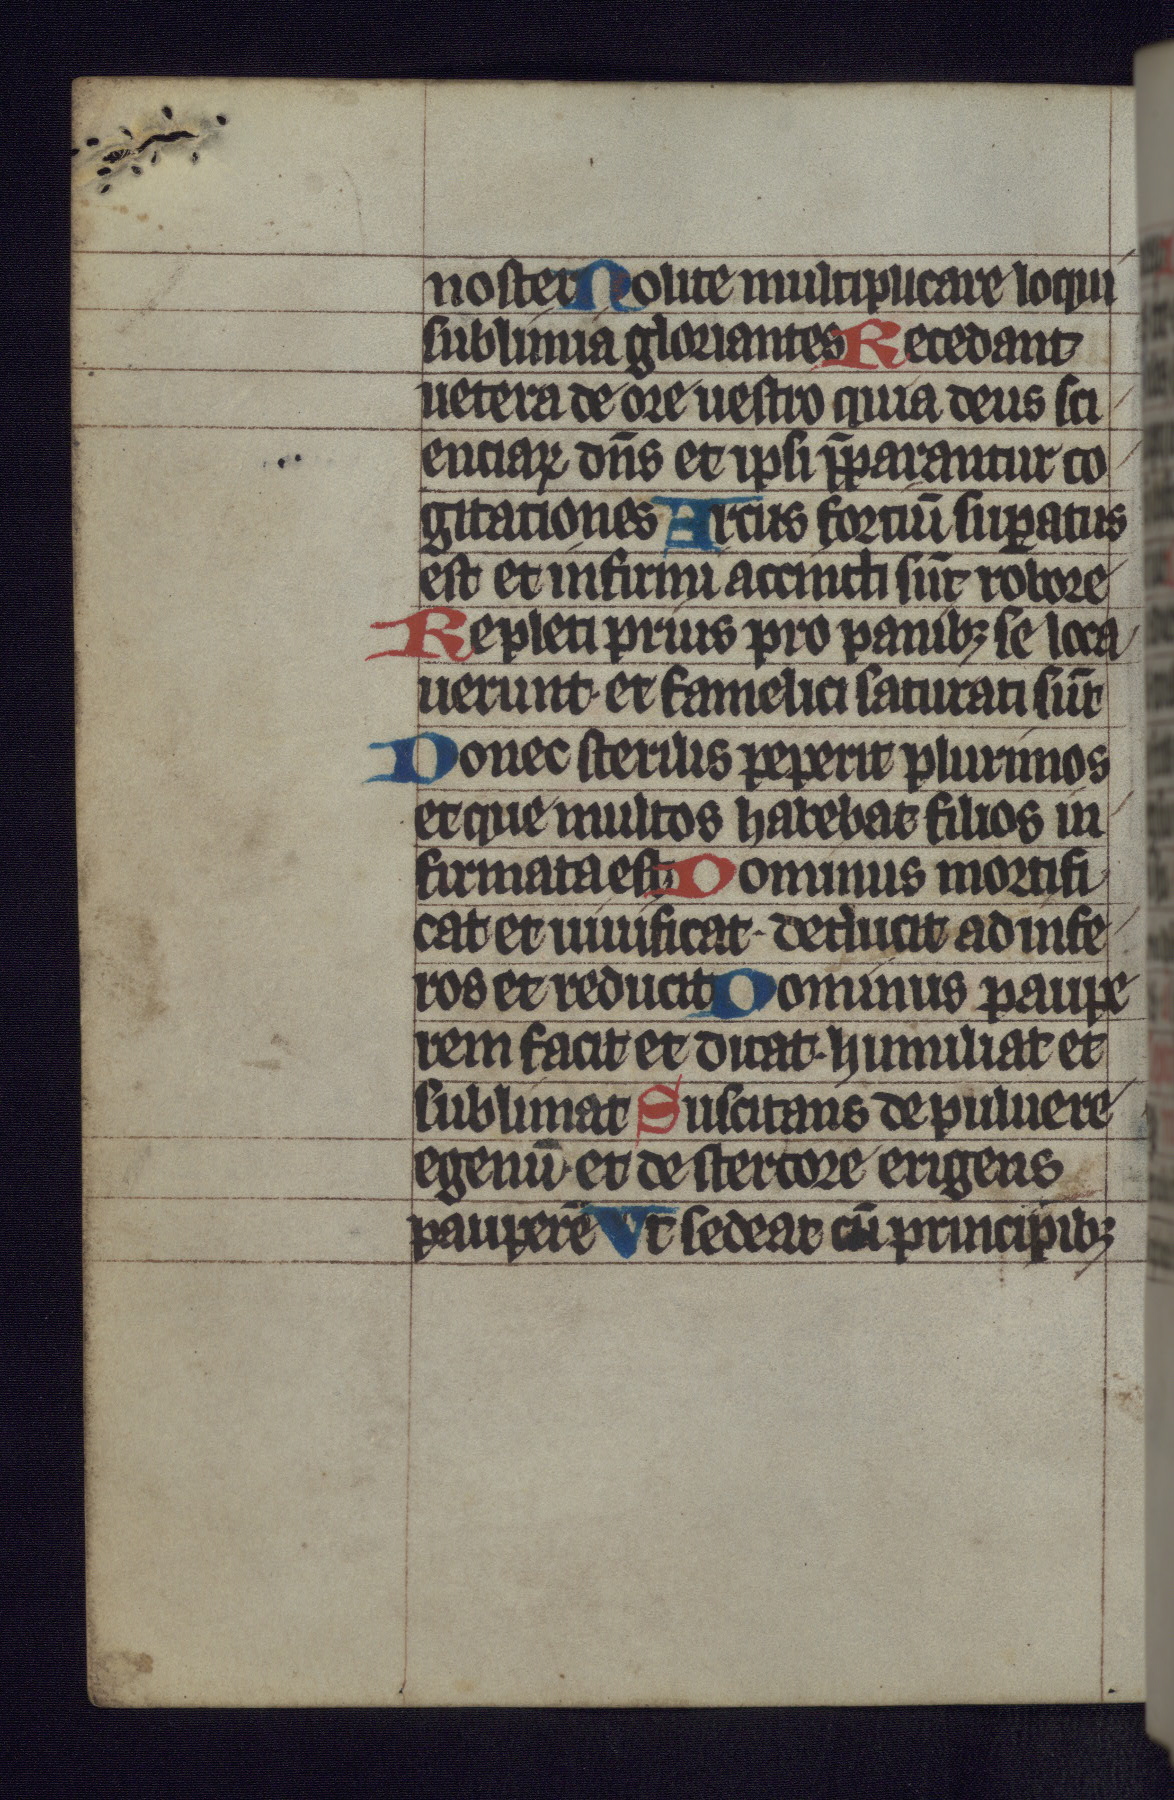 noster Nolite multiplicare loqui
sublimia gloriantes Recedant
uetera de ore uestro quia deus sci
enciaꝝ dn̄s et ipsi p̄parantur co
gitationes Arcus fortiū suꝑatus
est et infirmi accincti sūt robore
Repleti prius pro panibꝫ se loca
uerunt· et famelici saturati sūt
Donec sterilis peperit plurimos
et que multos habebat filios in
firmata est Dominus mortifi
cat et uiuificat· deducit ad infe
ros et reducit Dominus paupe
rem facit et ditat· humiliat et
sublimat Suscitans de puluere
egenū· et de stercore erigens
pauperē Vt sedeat cū principibꝫ